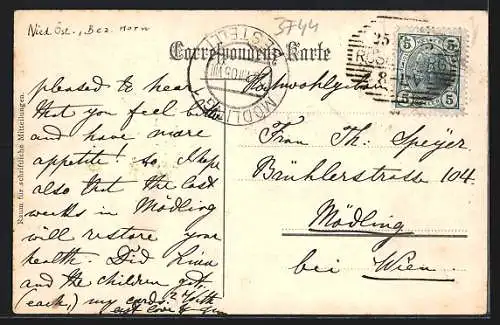 Nied. Öst., Bez. Horn
3744
Correspondenz-Karte
Raum für schriftliche Mitteilungen.
MÖDLING 1
BESTELLT
25
8
5 5
5 5
Hochwohlgeboren
Frau Th: Speyer
Brühlerstrasse 104.
Mödling
bei Wien.
pleased to hear
that you feel better
and have more
appetite! to. Hope
also that the last
weeks in Mödling
will restore your
health. Did Lina
and the children get,
(each,) my cards? With
best love